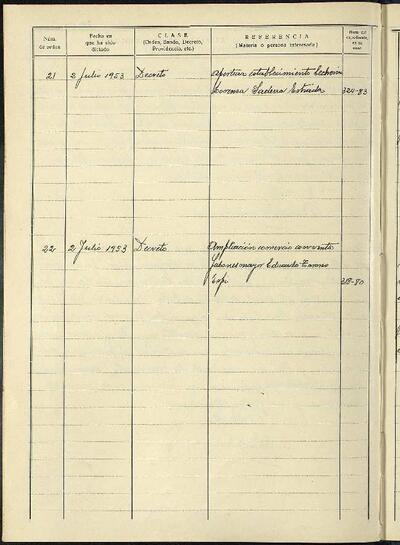 Núm. de orden
Fecha en que ha sido dictado
CLASE (Orden, Bando, Decreto, Providencia, etc.)
REFERENCIA (Materia o persona interesada)
Núm. del expediente, en su caso
21 2 Julio 1953 Decreto Apertura establecimiento lechería
Lorenza Estrada 324-83
22 2 Julio 1953 Decreto Ampliación comercio con venta
Jabones mayor Eduardo
318-80